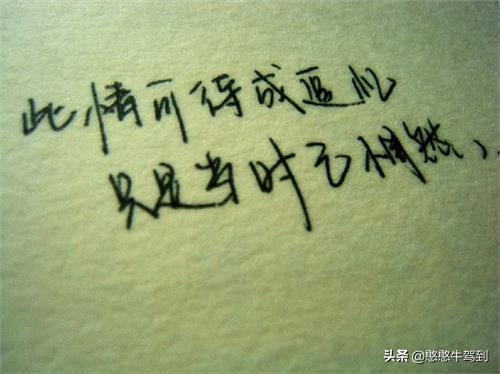 此情可待成追忆
只是当时已惘然、
头条 @憨憨牛驾到